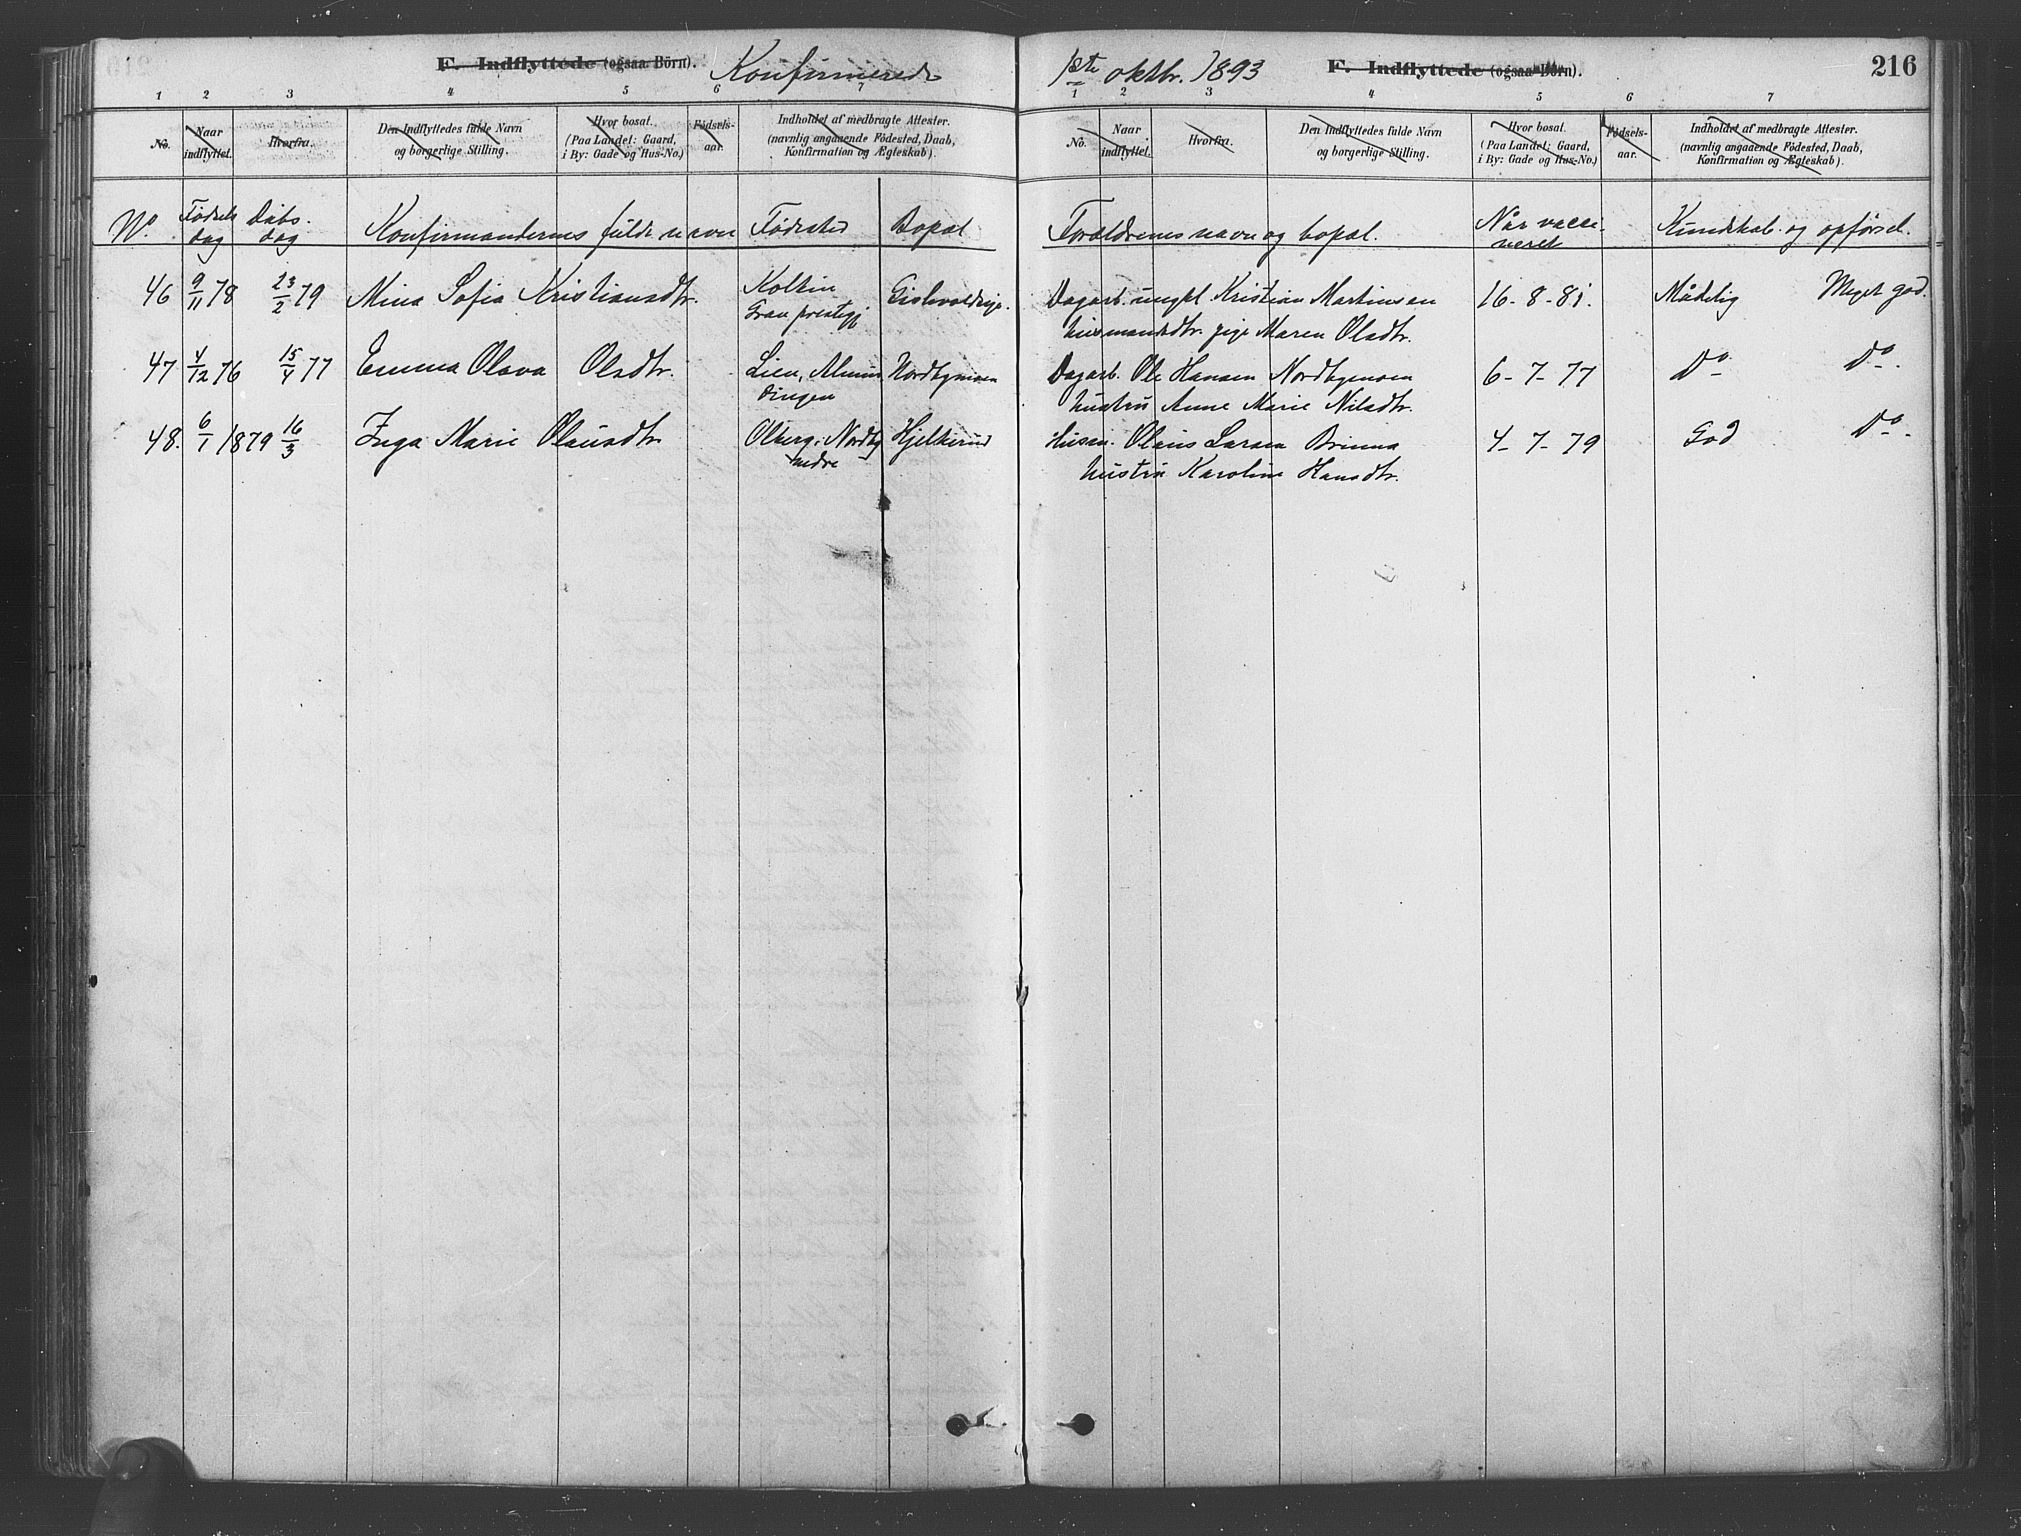 F. Indflyttede (ogsaa Börn). Konfirmerede
1ste oktbr. 1893 F. Indflyttede (ogsaa Börn). 216
1 2 3 4 5 6 7
1 2 3 4 5 6 7
No. Naar indflyttet. Hvorfra. Den Indflyttedes fulde Navn og borgerlige Stilling. Hvor bosat. (Paa Landet: Gaard, i By: Gade og Hus-No.) Födsels-aar. Indholdet af medbragte Attester. (navnlig angaaende Födested, Daab, Konfirmation og Ægteskab).
No. Naar indflyttet. Hvorfra. Den Indflyttedes fulde Navn og borgerlige Stilling. Hvor bosat. (Paa Landet: Gaard, i By: Gade og Hus-No.) Födsels-aar. Indholdet af medbragte Attester. (navnlig angaaende Födested, Daab, Konfirmation og Ægteskab).
No Fødsels dag Dåbs. dag Konfirmandernes fulde navn Fødested Bopæl
Forældrenes navn og bopæl. Når vacci-neret Kundskab og opførsel.
46 9/11 78 23/2 79 Mina Sofia Kristiansdtr.
Gran prestegj
Dagarb. ungkl Kristian Martinsen 16-8-81. Mådelig Meget god.
husmandsdtr. pige Maren Olsdtr.
47 4/12 76 15/4 77 Emma Olava Olsdtr. Lien, Almin dingen Nordbymoen
Dagarb. Ole Hansen Nordbymoen 6-7-77 Do Do.
hustru Anne Marie Nilsdtr.
48. 6/1 1879 16/3 Inga Marie Olausdtr. Olberg, Nordby nedre Hjelkerud
Husm. Olaus Larsen 4-7-79 God Do.
hustru Karoline Hansdtr.